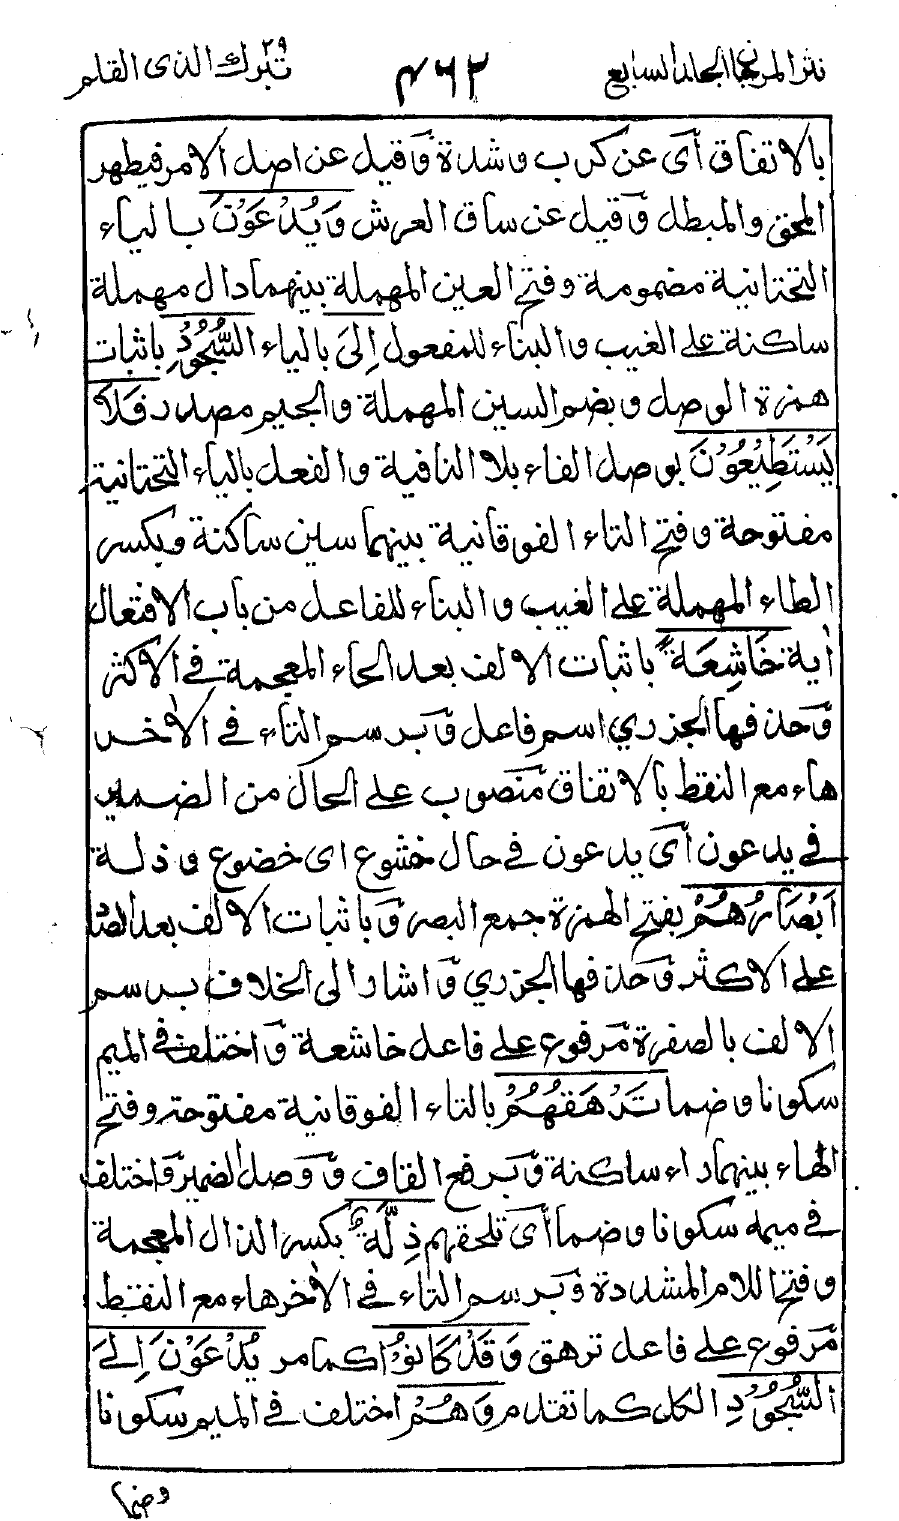 نثر المرجان المجلد السابع ٤٦٢ تبرك الذى ٢٩ القلم
بالاتفاق أى عن كرب وشدة وقيل عن اصل الامر فيظهر
المحق والمبطل وقيل عن ساق العرش وَيُدْعَوْنَ بالياء
التحتانية مضمومة وفتح العين المهملة بينهما دال مهملة
ساكنة على الغيب والبناء للمفعول إِلَى بالياء السُّجُوْدِ باثبات
همزة الوصل وبضم السين المهملة والجيم مصدر فَلَا
يَسْتَطِيْعُوْنَ بوصل الفاء بلا النافية والفعل بالياء التحتانية
مفتوحة وفتح التاء الفوقانية بينهما سين ساكنة وبكسر
الطاء المهملة على الغيب والبناء للفاعل من باب الافتعال
أية خَاشِعَةً باثبات الالف بعد الخاء المعجمة فى الاكثر
وحذفها الجزري اسم فاعل وبرسم التاء فى الأخر
هاء مع النقط بالاتفاق منصوب على الحال من الضمير
فى يدعون أى يدعون فى حال خشوع اى خضوع وذلة
اَبْصَارُهُمْ بفتح الهمزة جمع البصر وباثبات الالف بعد الصاد
على الاكثر وحذفها الجزري واشار الى الخلاف برسم
الالف بالصفرة مرفوع على فاعل خاشعة واختلف فى الميم
سكونا وضما تَرْهَقُهُمْ بالتاء الفوقانية مفتوحة وفتح
الهاء بينهما راء ساكنة وبرفع القاف ووصل الضمير واختلف
فى ميمه سكونا وضما أى تلحقهم ذِلَّةٌ بكسر الذال المعجمة
وفتح اللام المشددة وبرسم التاء فى الأخر هاء مع النقط
مرفوع على فاعل ترهق وَقَدْ كَانُوْا كما مر يُدْعَوْنَ اِلَى
السُّجُوْدِ الكل كما تقدم وَهُمْ اختلف فى الميم سكونا
وضما